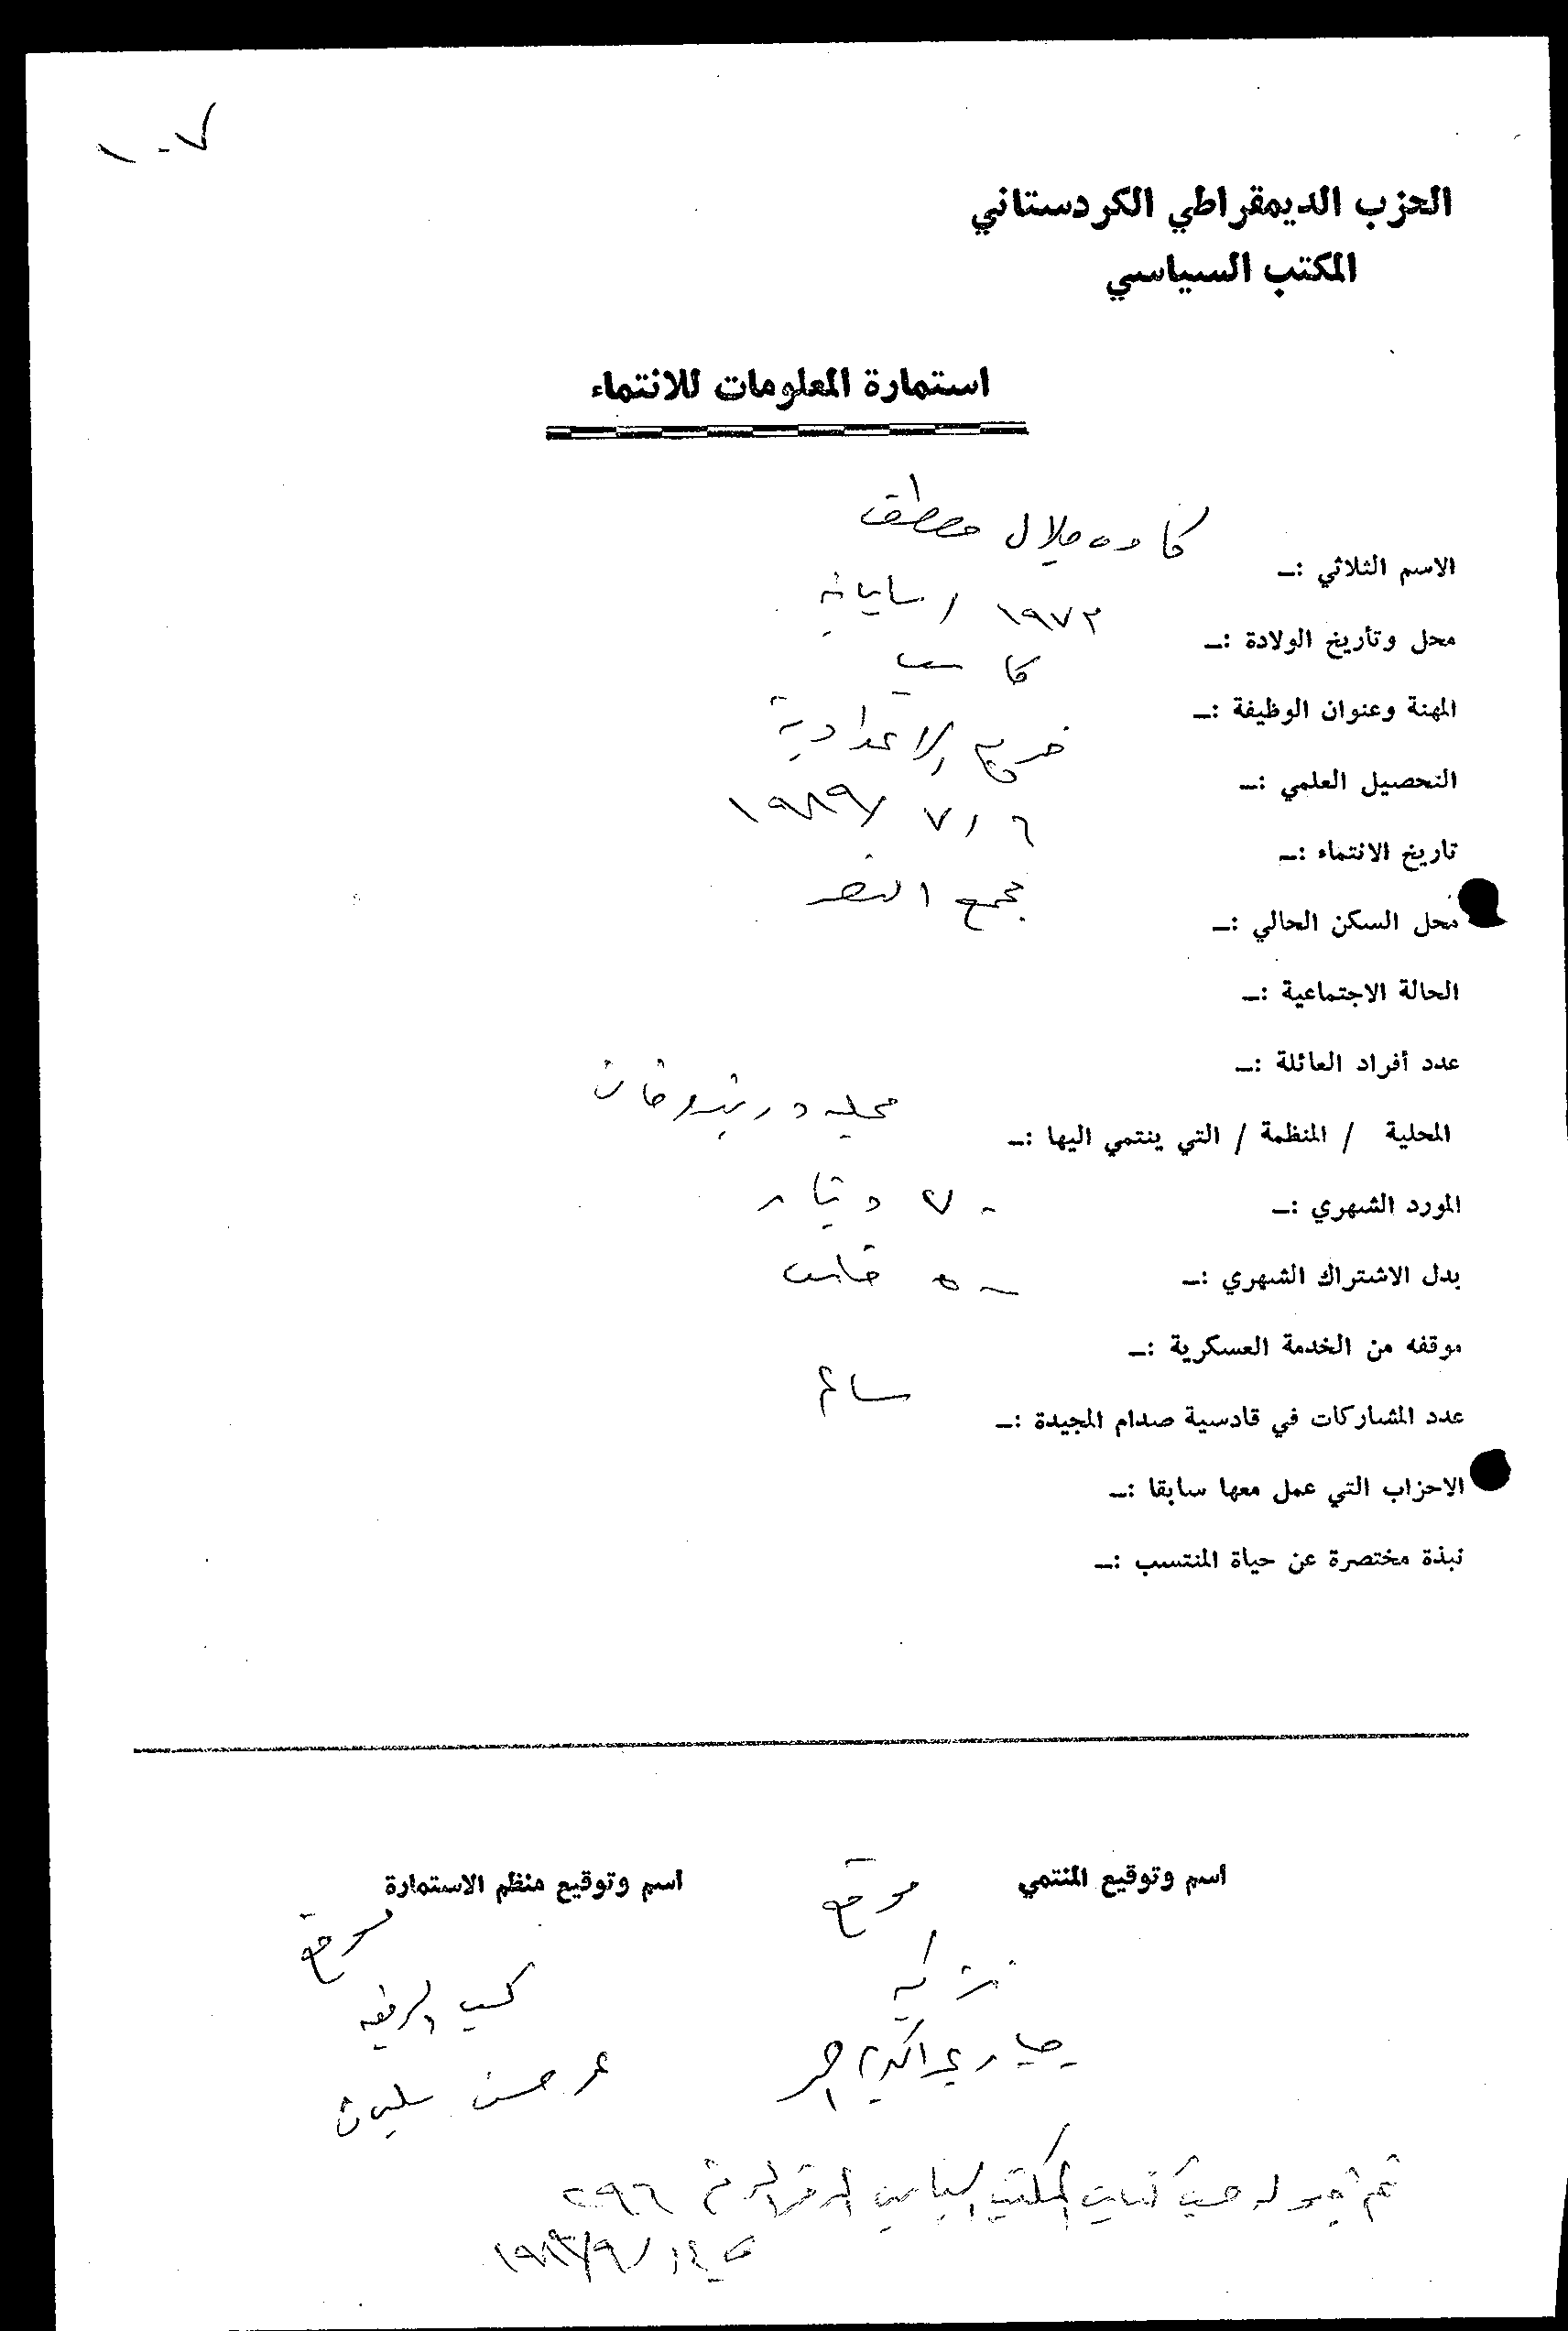 ١٠٧
الحزب الديمقراطي الكردستاني
المكتب السياسي
استمارة المعلومات للانتماء
الاسم الثلاثي :ـ كاوه جلال مصطفى
محل وتأريخ الولادة :ـ ١٩٧٢ /
المهنة وعنوان الوظيفة :ـ كاسب
التحصيل العلمي :ـ خريج الاعدادية
تاريخ الانتماء :ـ ٦ / ٧ / ١٩٨٩
محل السكن الحالي :ـ مجمع النصر
الحالة الاجتماعية :ـ
عدد أفراد العائلة :ـ
المحلية / المنظمة / التي ينتمي اليها :ـ محلية
المورد الشهري :ـ ٧٠ دينار
بدل الاشتراك الشهري :ـ فلس
موقفه من الخدمة العسكرية :ـ
عدد المشاركات في قادسية صدام المجيدة :ـ سالم
الاحزاب التي عمل معها سابقا :ـ
نبذة مختصرة عن حياة المنتسب :ـ
اسم وتوقيع المنتمي موقع
اسم وتوقيع منظم الاستمارة
موقع
تزكية
عمر حسن سليمان
تم قبوله حسب كتاب المكتب السياسي المرقم ٢٩٦
في ١٤ / ٩ /